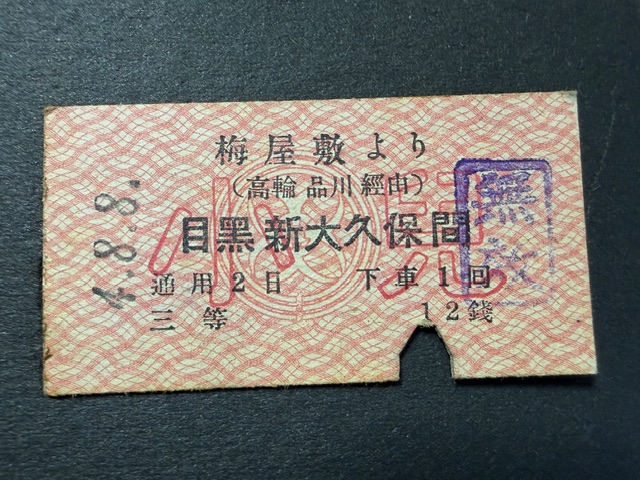 梅屋敷より
(高輪 品川 經由)
目黑 新大久保間
小児
通用2日 下車1回
三等 12錢
4.8.8.
無効